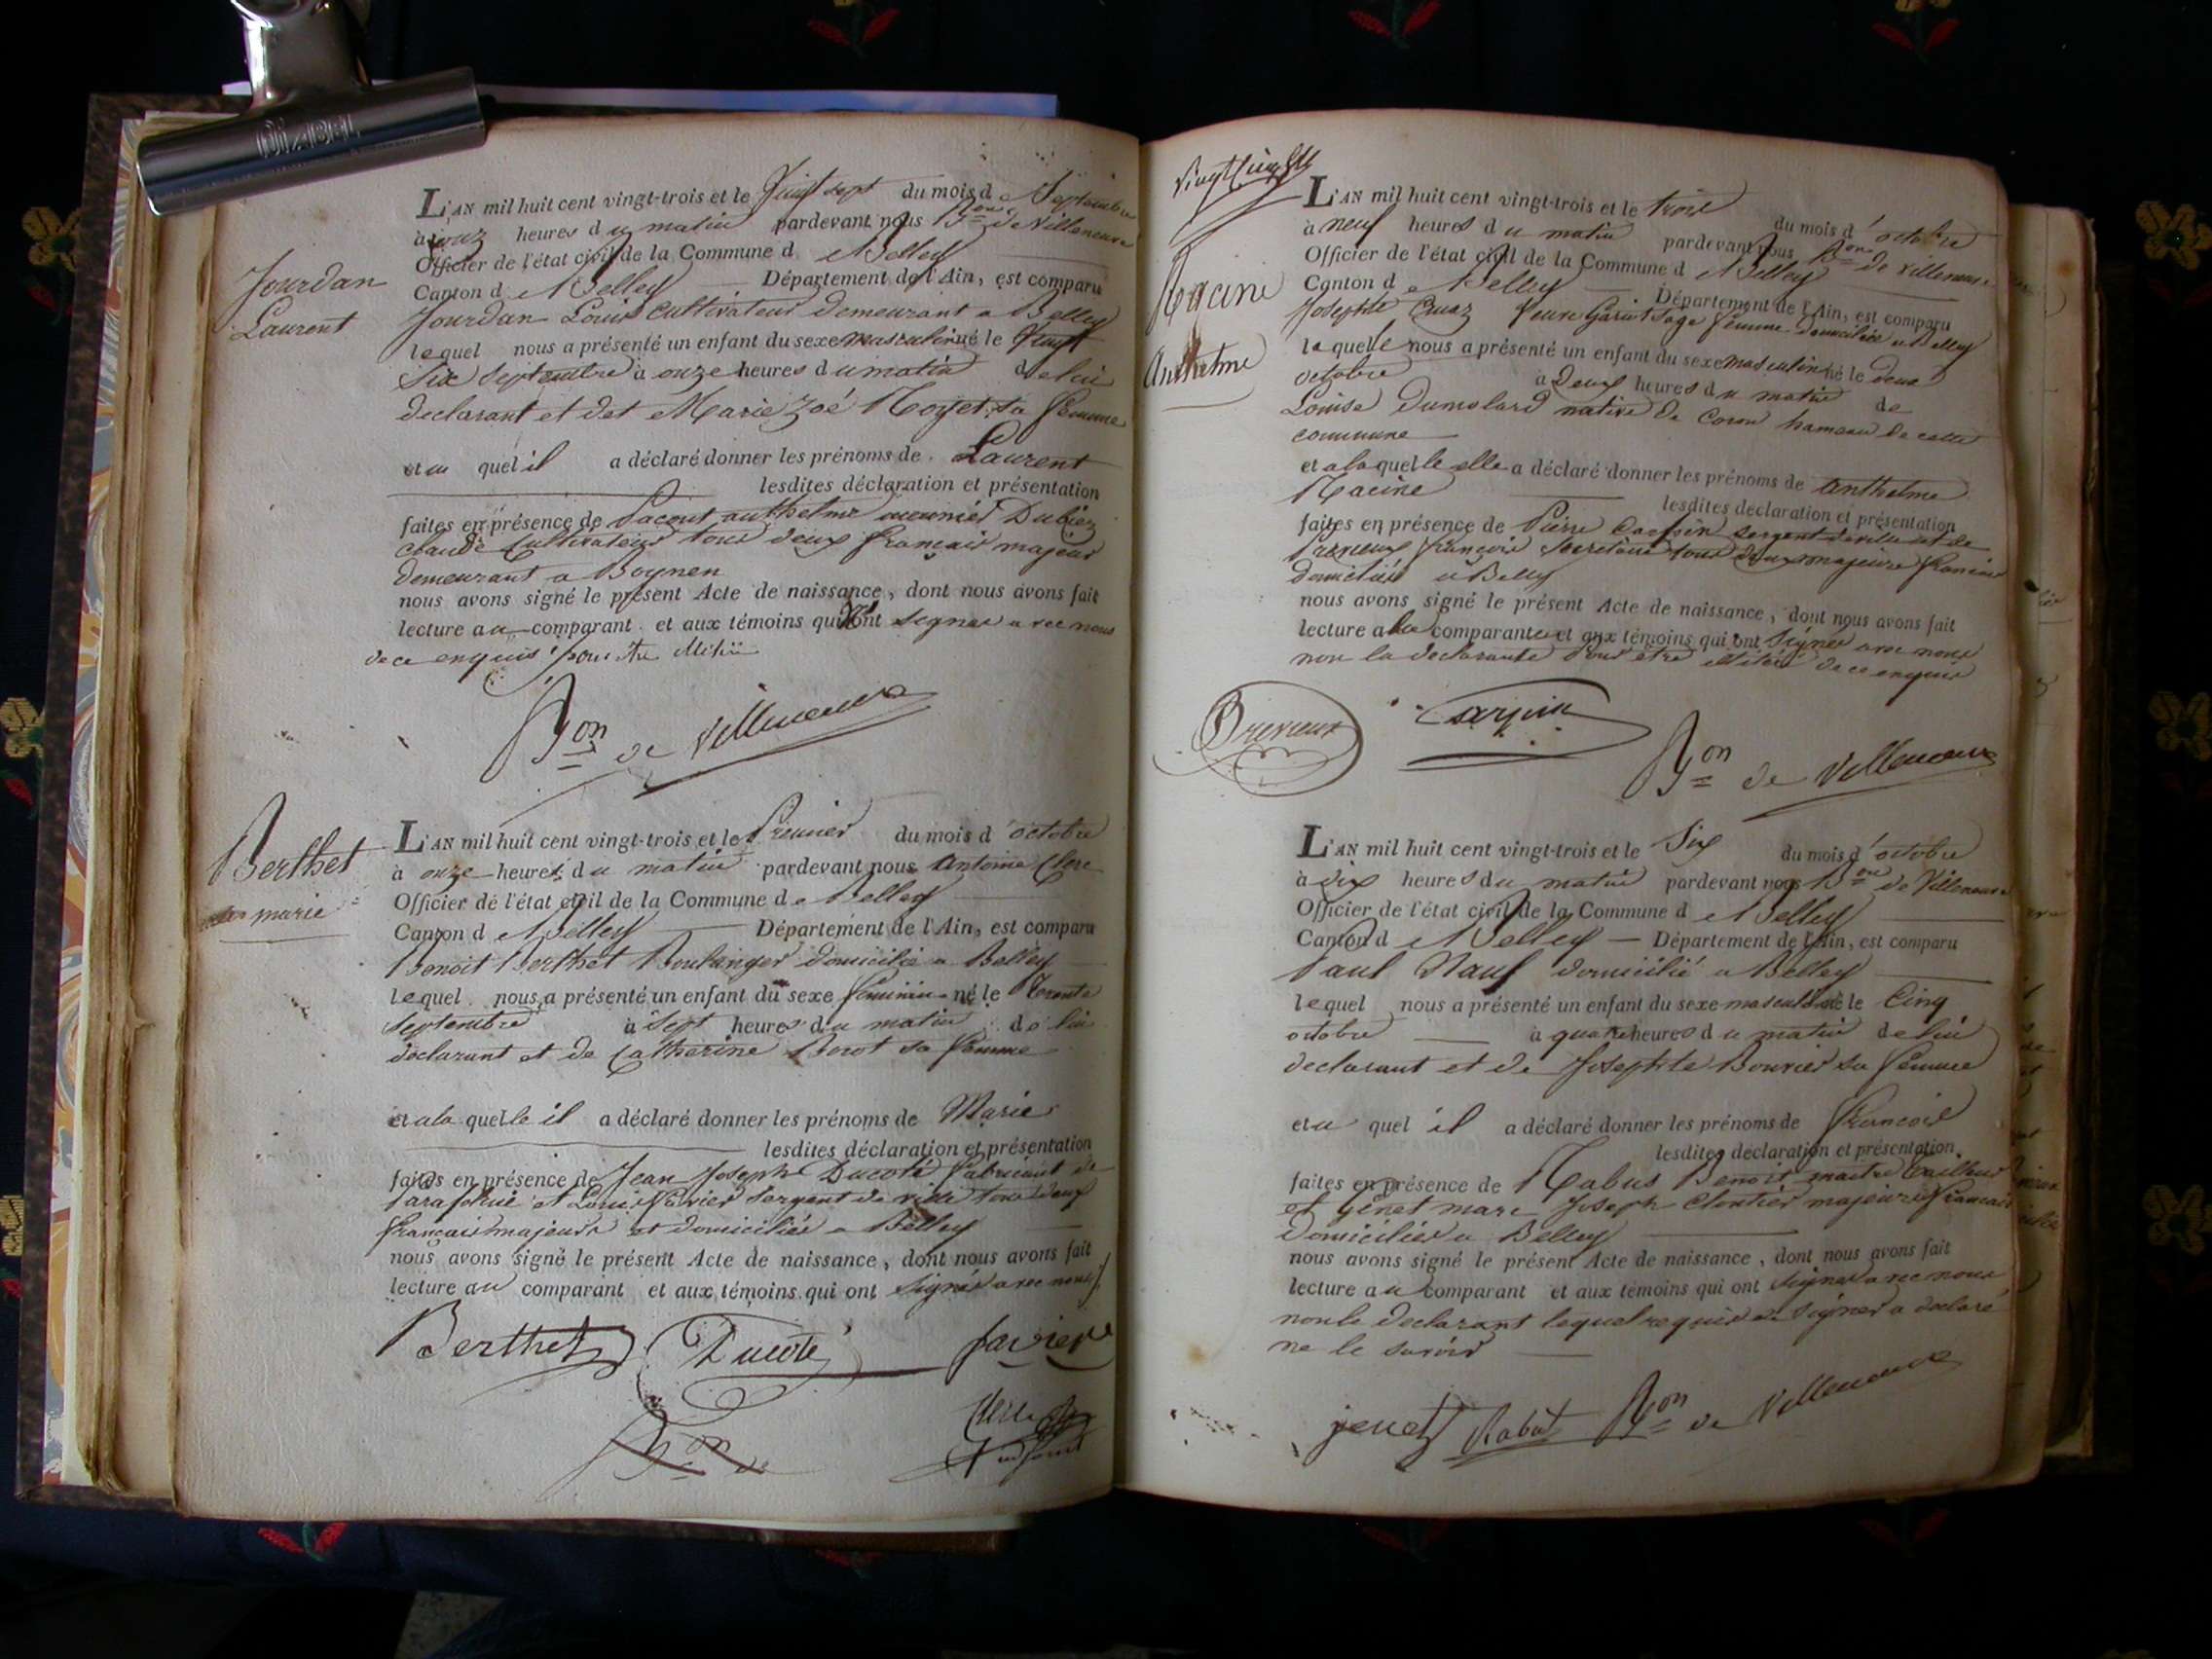 DIABEL
L'AN mil huit cent vingt-trois et le Vingt sept du mois de Septembre
à onz heures du matin pardevant nous Bon de Villeneuve
Officier de l'état civil de la Commune d Belley
Canton d Belley Département de l'Ain, est comparu
Jourdan
Laurent
Jourdan Louis cultivateur demeurant a Belley
lequel nous a présenté un enfant du sexe masculin né le Vingt
Six Septembre à onze heures du matin de lui
declarant et det Marie Zoé sa femme
et au quel il a déclaré donner les prénoms de Laurent
lesdites déclaration et présentation
faites en présence de anthelme meunier Dubiez
claude cultivateur tous deux français majeur
demeurant a
nous avons signé le présent Acte de naissance, dont nous avons fait
lecture au comparant et aux témoins qui ont signer avec nous
de ce enquis
Bon de Villeneuve
Berthet
marie
L'AN mil huit cent vingt-trois et le Premier du mois d'octobre
à onze heures du matin pardevant nous Antoine Clerc
Officier de l'état civil de la Commune de Belley
Canton d Belley Département de l'Ain, est comparu
Benoit Berthet Boulanger domicilié a Belley
lequel nous a présenté un enfant du sexe féminin né le Trente
Septembre à Sept heures du matin de lui
déclarant et de Catherine Borot sa femme
et a la quelle il a déclaré donner les prénoms de Marie
lesdites déclaration et présentation
faites en présence de Jean Joseph Ducoté fabricant de
et Louis Favier Sergent de ville tous deux
français majeurs et domiciliés a Belley
nous avons signé le présent Acte de naissance, dont nous avons fait
lecture au comparant et aux témoins qui ont signés avec nous
Berthet Ducoté favier
Bon de
Vingt Cinq
L'AN mil huit cent vingt-trois et le trois du mois d'octobre
à neuf heures du matin pardevant nous Bon de Villeneuve
Officier de l'état civil de la Commune d Belley
Canton d Belley Département de l'Ain, est comparu
Racine
Anthelme
Josephte Cruaz Veuve Sage femme domiciliée a Belley
laquelle nous a présenté un enfant du sexe masculin né le deux
octobre à Deux heures du matin de
Louise Dumolard native de Coron hameau de cette
commune
et a la quelle elle a déclaré donner les prénoms de anthelme
Racine lesdites déclaration et présentation
faites en présence de Pierre sergent de ville et de
françois Secretaire tous deux majeurs francais
domiciliés a Belley
nous avons signé le présent Acte de naissance, dont nous avons fait
lecture a la comparante et aux témoins qui ont Signés avec nous
non la declarante Pour etre de ce enquis
Bon de Villeneuve
L'AN mil huit cent vingt-trois et le Six du mois d'octobre
à dix heures du matin pardevant nous Bon de Villeneuve
Officier de l'état civil de la Commune d Belley
Canton d Belley Département de l'Ain, est comparu
Paul domicilié a Belley
lequel nous a présenté un enfant du sexe masculin né le Cinq
octobre à quatre heures du matin de lui
declarant et de Josephte Bouvier sa femme
et au quel il a déclaré donner les prénoms de francois
lesdites déclaration et présentation
faites en présence de Rabus Benoit maitre tailleur
et Genet marc Joseph majeurs francais
Domiciliés a Belley
nous avons signé le présent Acte de naissance, dont nous avons fait
lecture au comparant et aux témoins qui ont Signés avec nous
non le declarant lequel requis de signer a declaré
ne le savoir
jenet Rabut Bon de Villeneuve